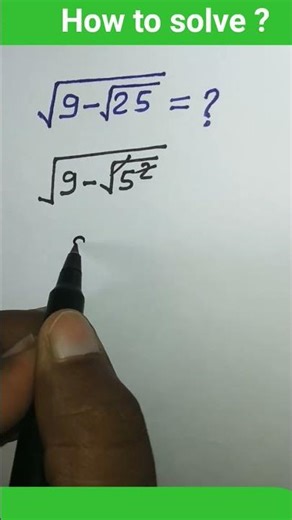 How to solve ?
√9-√25 = ?
√9-√5²